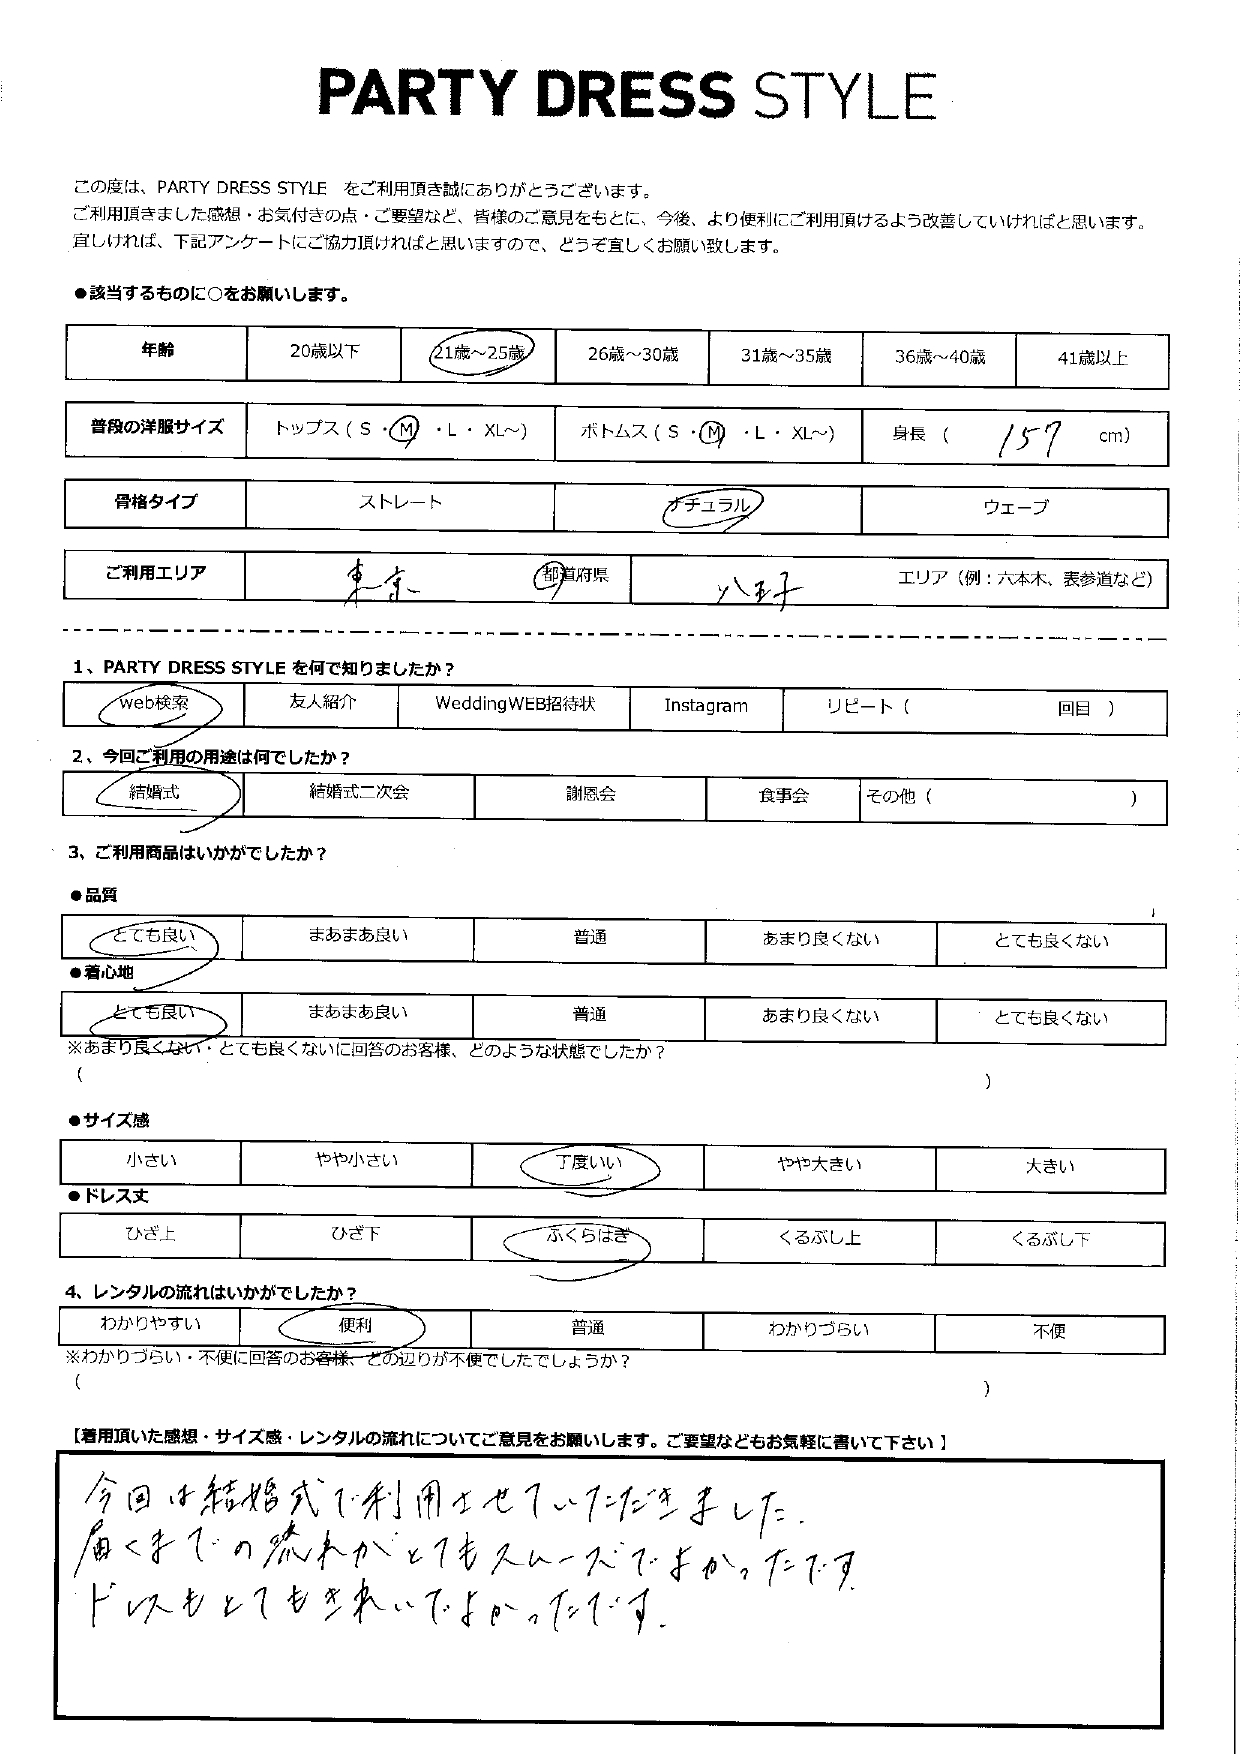 PARTY DRESS STYLE
この度は、PARTY DRESS STYLE をご利用頂き誠にありがとうございます。
ご利用頂きました感想・お気付きの点・ご要望など、皆様のご意見をもとに、今後、より便利にご利用頂けるよう改善していければと思います。
宜しければ、下記アンケートにご協力頂ければと思いますので、どうぞ宜しくお願い致します。
●該当するものに○をお願いします。
年齢 20歳以下 21歳～25歳 26歳～30歳 31歳～35歳 36歳～40歳 41歳以上
普段の洋服サイズ トップス ( S ・M ・L ・ XL～) ボトムス ( S ・M ・L ・ XL～) 身長 ( 157 cm)
骨格タイプ ストレート ナチュラル ウェーブ
ご利用エリア 東京 都道府県 八王子 エリア（例：六本木、表参道など）
1、PARTY DRESS STYLE を何で知りましたか？
web検索 友人紹介 WeddingWEB招待状 Instagram リピート ( 回目 )
2、今回ご利用の用途は何でしたか？
結婚式 結婚式二次会 謝恩会 食事会 その他 ( )
3、ご利用商品はいかがでしたか？
●品質
とても良い まあまあ良い 普通 あまり良くない とても良くない
●着心地
とても良い まあまあ良い 普通 あまり良くない とても良くない
※あまり良くない・とても良くないに回答のお客様、どのような状態でしたか？
( )
●サイズ感
小さい やや小さい 丁度いい やや大きい 大きい
●ドレス丈
ひざ上 ひざ下 ふくらはぎ くるぶし上 くるぶし下
4、レンタルの流れはいかがでしたか？
わかりやすい 便利 普通 わかりづらい 不便
※わかりづらい・不便に回答のお客様、どの辺りが不便でしたでしょうか？
( )
【着用頂いた感想・サイズ感・レンタルの流れについてご意見をお願いします。ご要望などもお気軽に書いて下さい】
今回は結婚式で利用させていただきました.
届くまでの流れがとてもスムーズでよかったです.
ドレスもとてもきれいでよかったです.